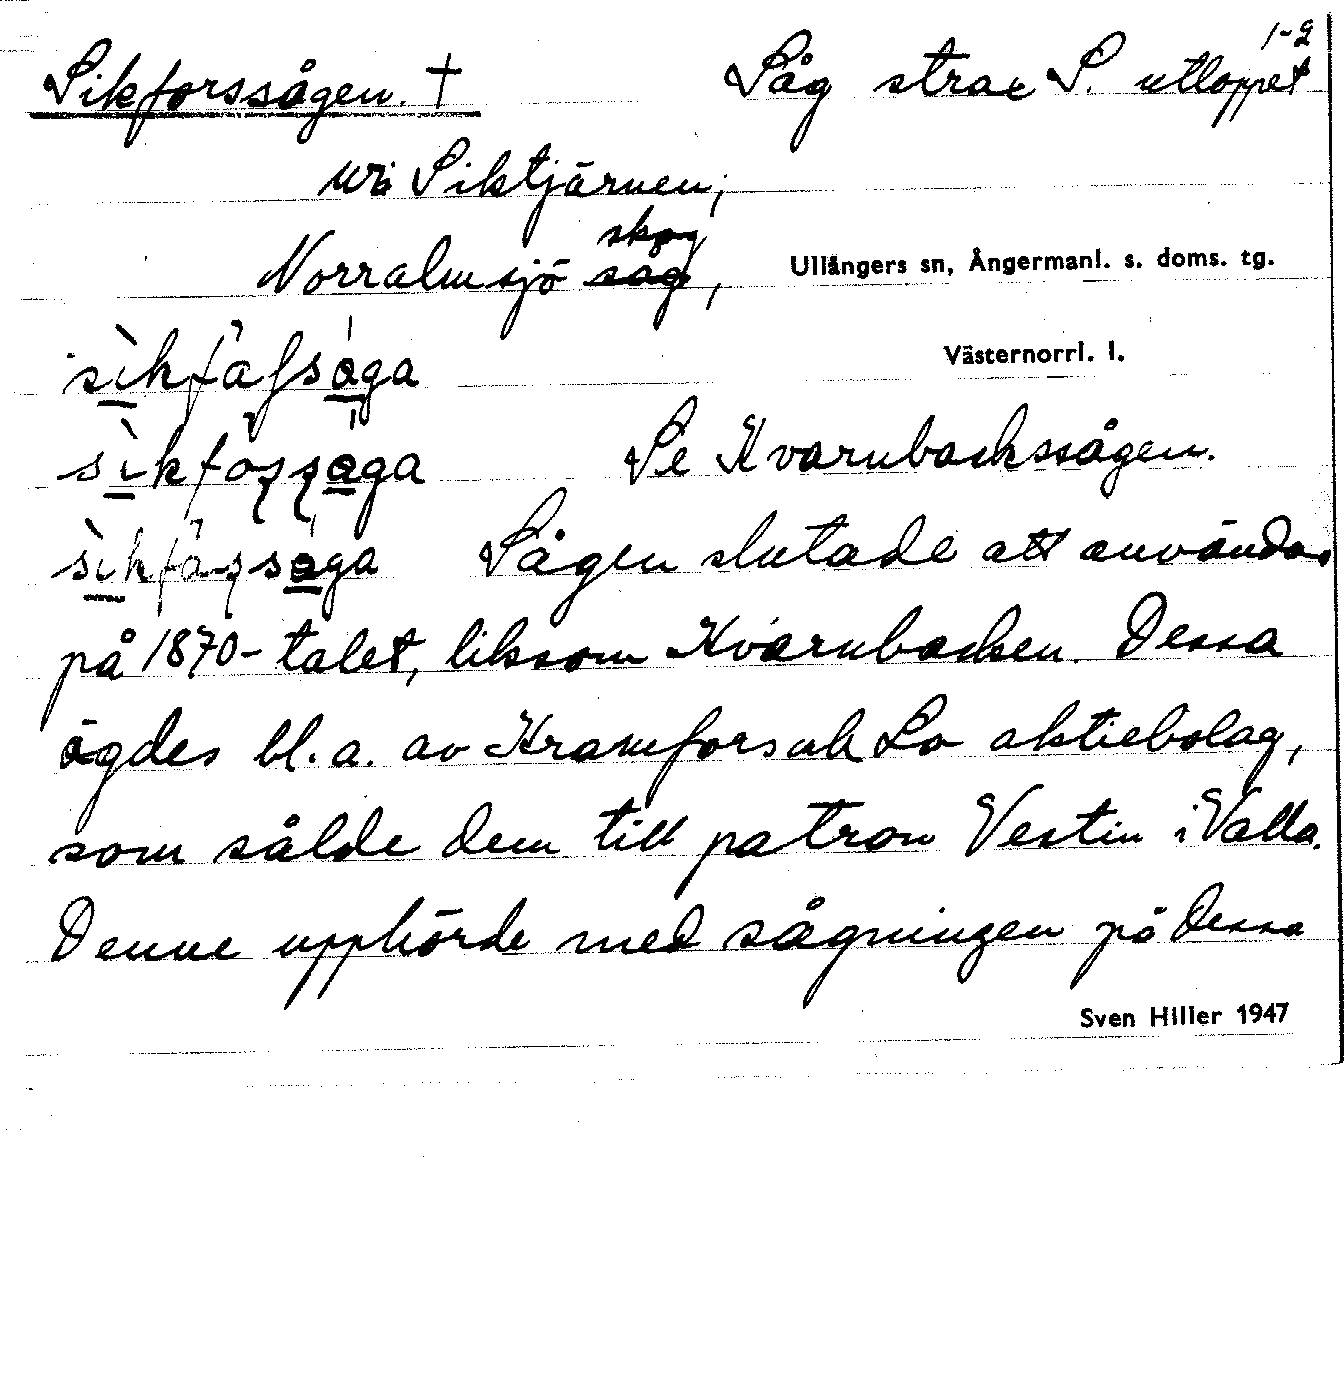 1-2
Sikforssågen. † Såg strax S. utloppet
ur Siktjärnen,
skog
Norralmsjö såg, Ullångers sn, Ångermanl. s. doms. tg.
Västernorrl. l.
Se Kvarnbackssågen.
Sågen slutade att användas
på 1870-talet, liksom Kvarnbacken. Dessa
ägdes bl.a. av Kramfors och Lo aktiebolag,
som sålde dem till patron Vestin i Valla.
Denne upphörde med sågningen på dessa
Sven Hiller 1947